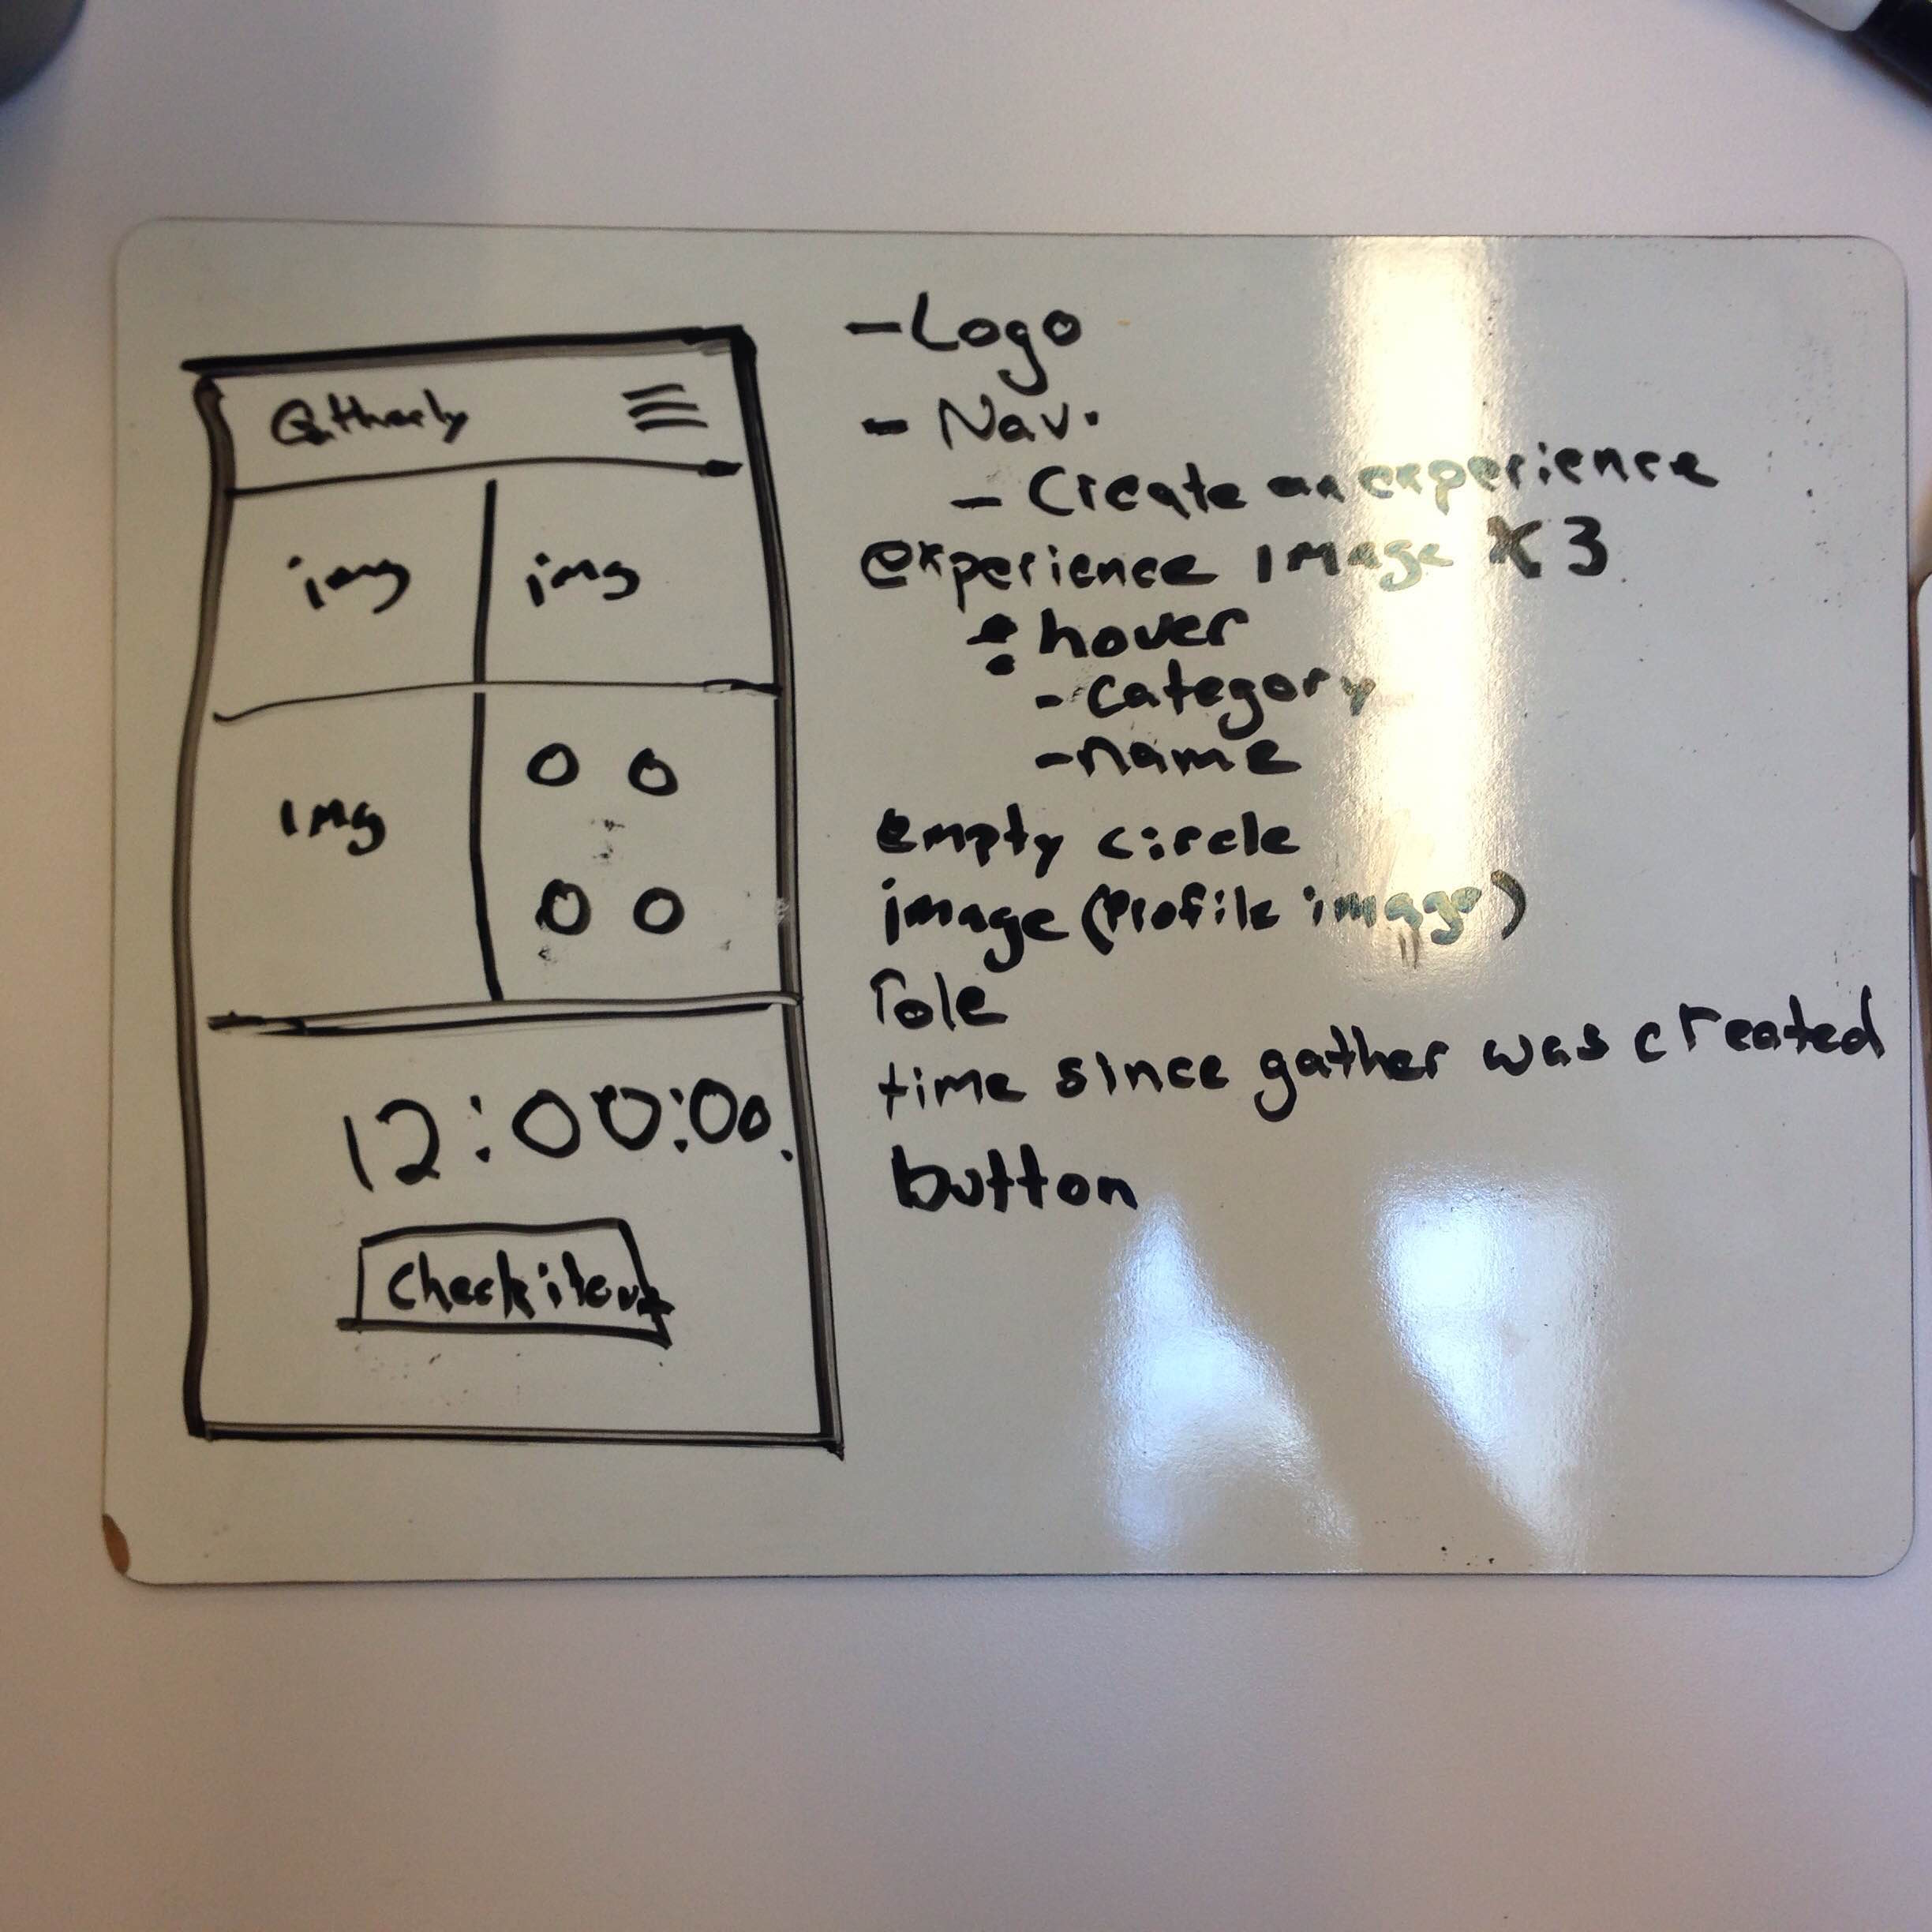 Gatherly
img img
img
12:00:00
Check it out
- Logo
- Nav.
- Create an experience
experience image X 3
: hover
- category
- name
empty circle
image (Profile image)
role
time since gather was created
button